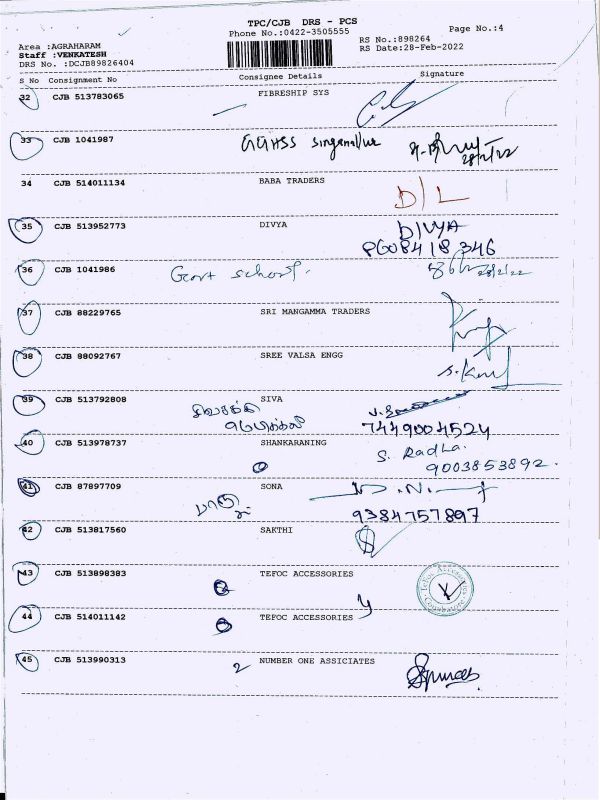 TPC/CJB DRS - PCS
Phone No.:0422-3505555
Page No.:4
RS No.:898264
RS Date:28-Feb-2022
Area :AGRAHARAM
Staff :VENKATESH
DRS No. :DCJB89826404
S No Consignment No Consignee Details Signature
32 CJB 513783065 FIBRESHIP SYS
33 CJB 1041987 GGHSS Singanallur
28/2/22
34 CJB 514011134 BABA TRADERS
D/L
35 CJB 513952773 DIVYA DIVYA
8608418346
36 CJB 1041986 Govt school. 28/2/22
37 CJB 88229765 SRI MANGAMMA TRADERS
38 CJB 88092767 SREE VALSA ENGG
39 CJB 513792808 SIVA
7449004524
40 CJB 513978737 SHANKARANING S. Radha.
9003853892.
41 CJB 87897709 SONA
9384757897
42 CJB 513817560 SAKTHI
43 CJB 513898383 TEFOC ACCESSORIES
Tefoc Accessories
Coimbatore
44 CJB 514011142 TEFOC ACCESSORIES
45 CJB 513990313 2 NUMBER ONE ASSICIATES